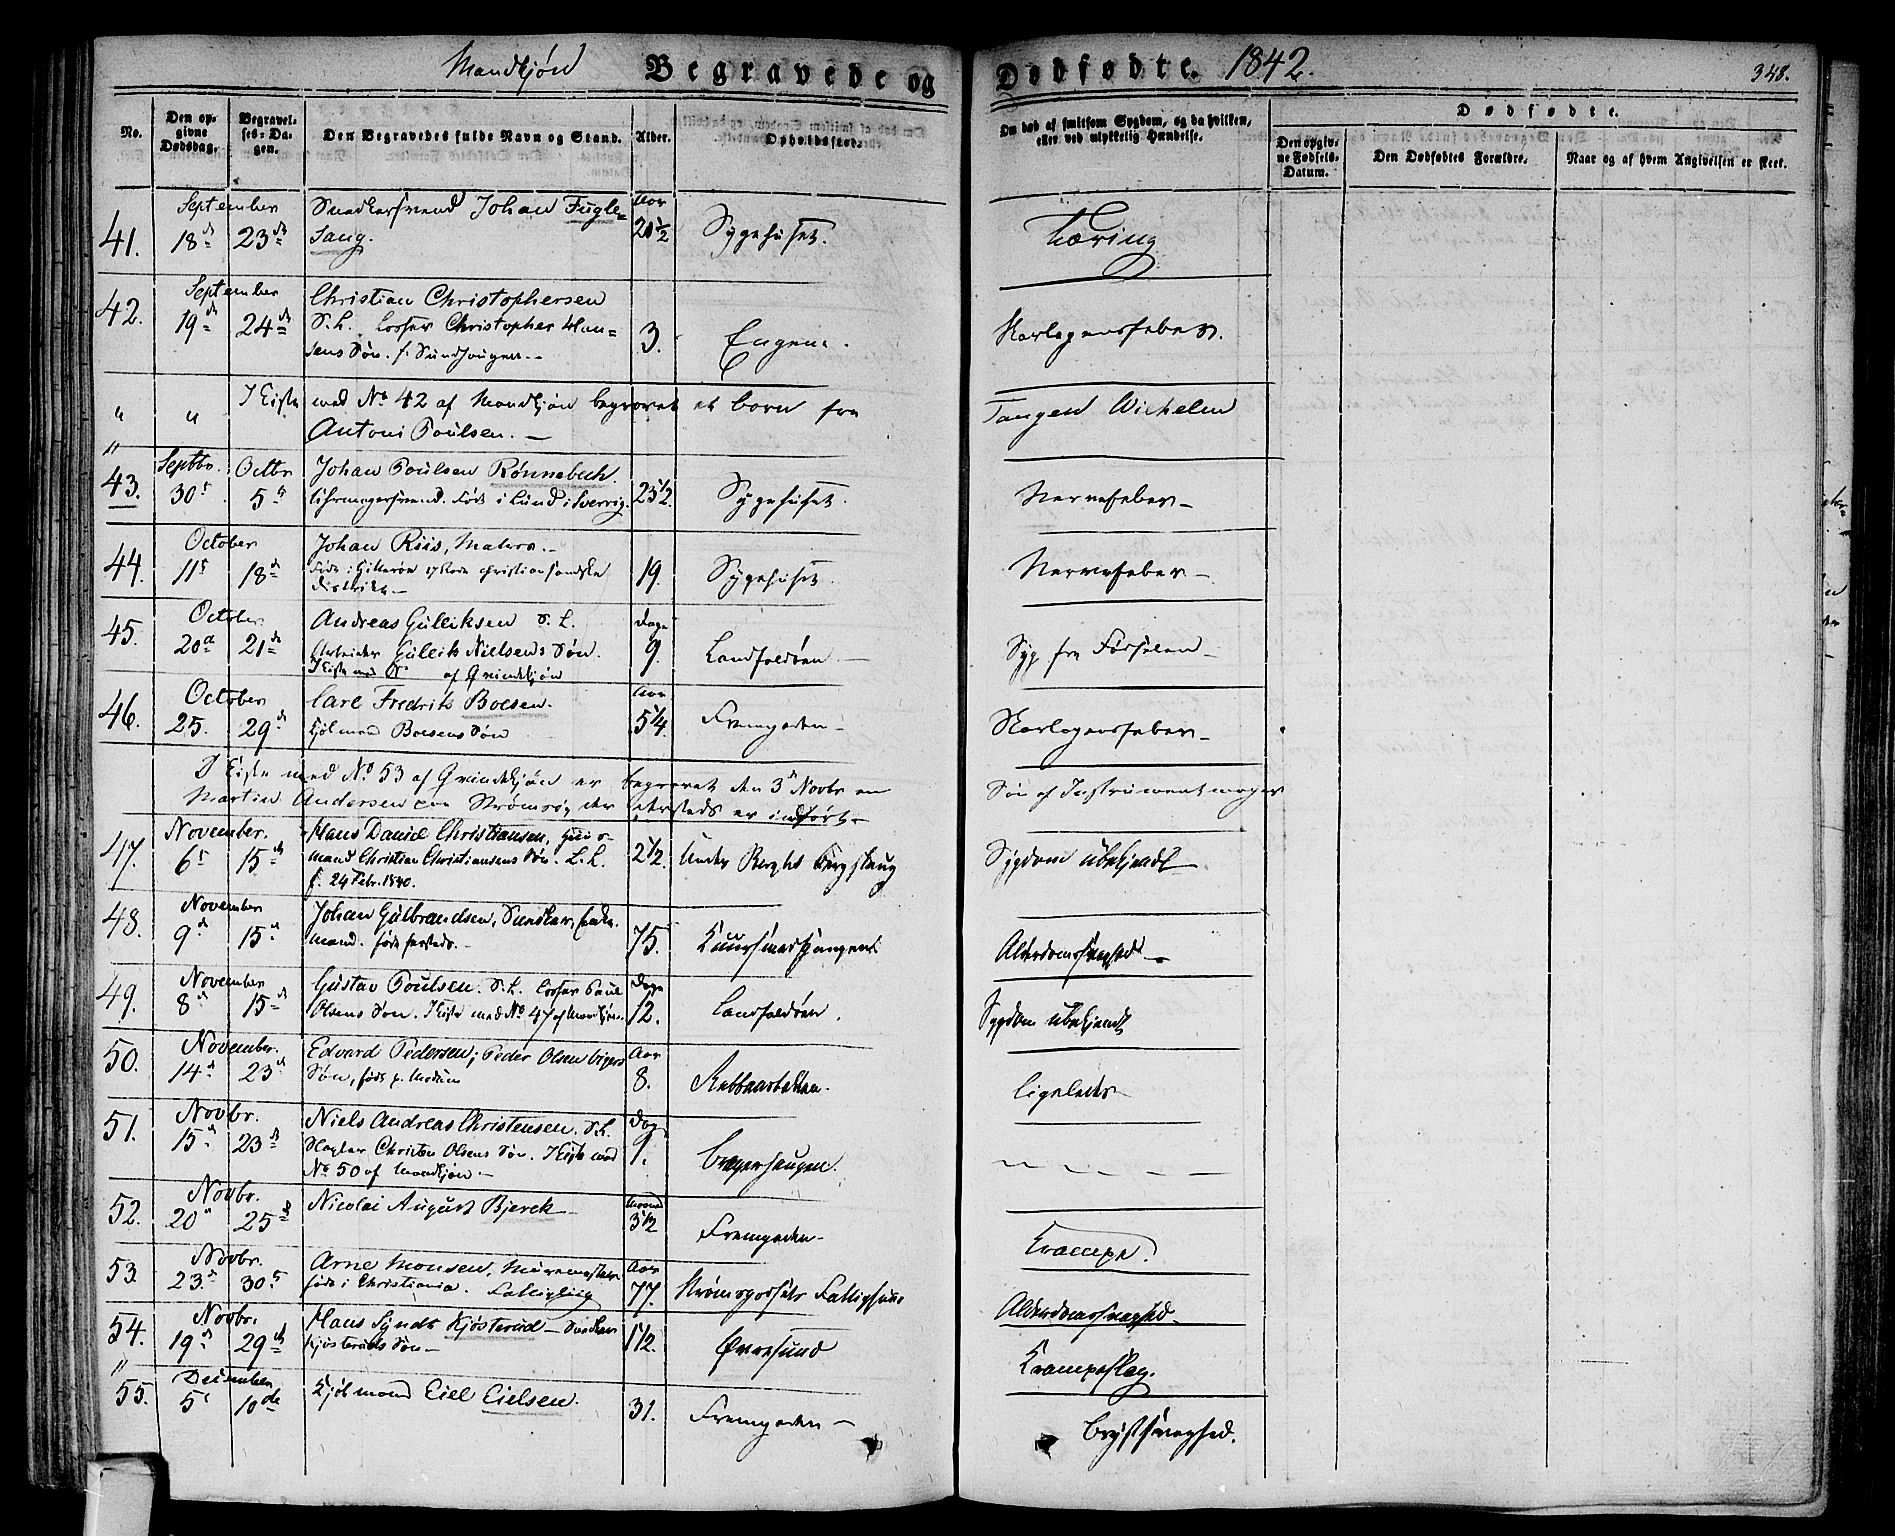 Mandkjøn Begravede og Dødfødte. 1842. 348.
No. Den opgivne Dødsdag. Begravelses-Dagen. Den Begravedes fulde Navn og Stand. Alder. Opholdssted. Om død af smitsom Sygdom, og da hvilken, eller ved ulykkelig Hændelse. Dødfødte.
Den opgivne Fødsels-Datum. Den Dødfødtes Forældre. Naar og af hvem Angivelsen er skeet.
September Snedkersvend Johan Fugle= Aar
41. 18de 23de Sang. 20 1/2 Sygehuset. Tæring
September Christian Christophersen
42. 19de 24de S. L. Losser Christopher Han=
sens Søn. f. Sundhougen. 3. Engene. Skarlagensfeber.
" " I Kiste med No 42 af Mandkjøn begravet et barn fra Tangen Wilhelm
Antoni Poulsen.
43. Septbr. 30te Octbr 5te Johan Poulsen Rønnebech.
Uhrmagersvend. Født i Lund i Sverrig. 23 1/2. Sygehuset. Nervefeber
October Johan Riis, Matros.
44. 11te 18de Født i Gitterøe Christiansandske
District 19. Sygehuset. Nervefeber
October Andreas Gulliksen S. L. Dage
45. 20de 21de Arbeider Gullik Nielsens Søn. 9. Landfaldøen Syg fra Fødselen
I Kiste med No af Qvindekjøn
October Carl Fredrik Boesen. Aar
46. 25. 29de Kjøbmand Boesens Søn 5 1/4. Fremgaden Skarlagensfeber
I Kiste med No 53 af Qvindekjøn er begravet den 3de Novbr en Søn af Instrumentmager
Martin Andersen paa Strømsøe der hersteds er indført
November. Hans Daniel Christiansen,
47. 6te 15de mand Christian Christiansens Søn. S. L. 2 1/2. Under Berget Bergslaug Sygdom ubekjendt
f. 24 Febr. 1840.
November Johan Gulbrandsen, Snedker,
48. 9de 15de mand. født hersteds. 75. Alderdomssvaghed
November Gustav Poulsen. S. L. Losser Paul Dage
49. 8de 15de Olsens Søn. I Kiste med No 47 af Mandkjøn. 12. Landfaldøen. Sygdom ubekjendt
November. Edvard Pedersen, Peder Olsen Aar
50. 14de 23de Søn, født p. Modum 8. ligeledes
Novbr. Niels Andreas Christensen. S. L. Dage
51. 15de 23de Slagter Christen Olsens Søn. I Kiste med 9. Bragerhaugen.
No 50 af Mandkjøn.
Novbr. Nicolai August Bjerck
52. 20de 25de 3 1/2 Fremgaden Krampe.
Novbr. Arne Monsen, Muremester Aar
53. 23de 30te født i Christiania. Fattiglig 77. Strømsgodsets Fattighuus Alderdomssvaghed
Novbr. Hans Lyndt Kjøsterud Snedker
54. 19de 29de Kjøsteruds Søn 1 1/2. Øvresund Krampeslag.
December
55. 5te 10de Kjøbmand Eiel Eielsen. 31. Fremgaden Brystsvaghed.